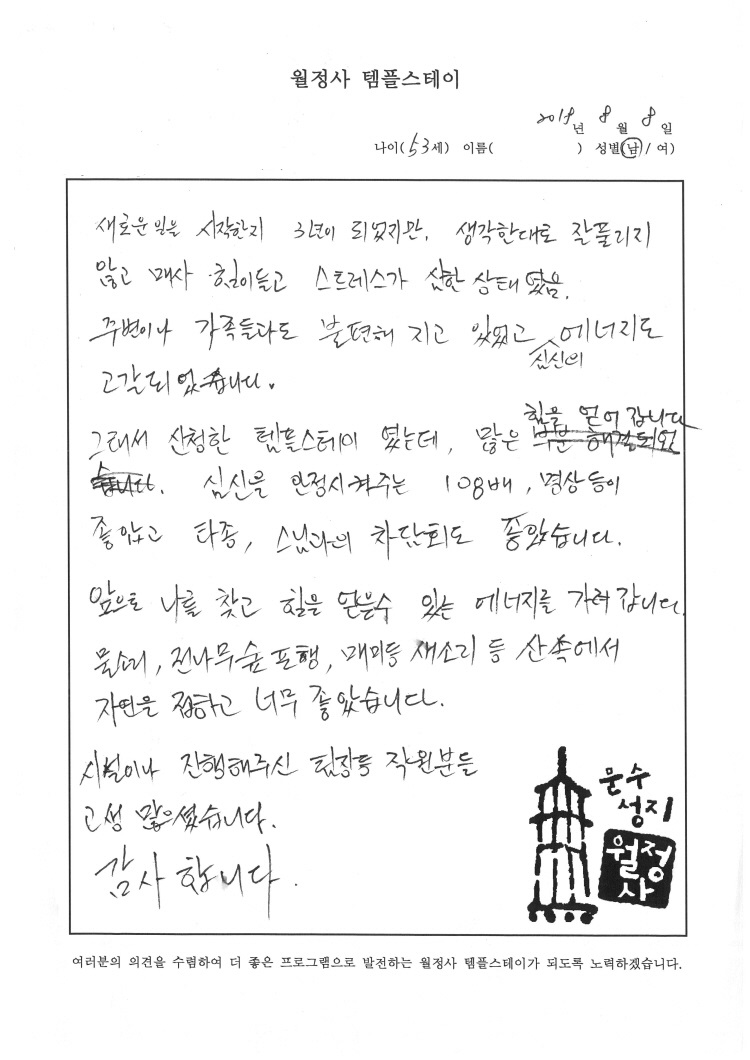 월정사 템플스테이
2018년 8월 8일
나이(53세) 이름( ) 성별(남/여)
새로운 일을 시작한지 3년이 되었지만, 생각한대로 잘풀리지
않고 매사 힘이들고 스트레스가 심한 상태 였음.
주변이나 가족들과도 불편해 지고 있었고 심신의 에너지도
고갈되었습니다.
그래서 신청한 템플스테이 였는데, 많은 힘을 얻어 갑니다
심신을 안정시켜주는 108배, 명상등이
좋았고 타종, 스님과의 차담회도 좋았습니다.
앞으로 나를 찾고 힘을 얻을수 있는 에너지를 가져 갑니다.
물소리, 전나무숲 포행, 매미등 새소리 등 산속에서
자연을 접하고 너무 좋았습니다.
시설이나 진행해주신 팀장등 직원분들
고생 많으셨습니다.
감사 합니다.
문수
성지
월정
사
여러분의 의견을 수렴하여 더 좋은 프로그램으로 발전하는 월정사 템플스테이가 되도록 노력하겠습니다.